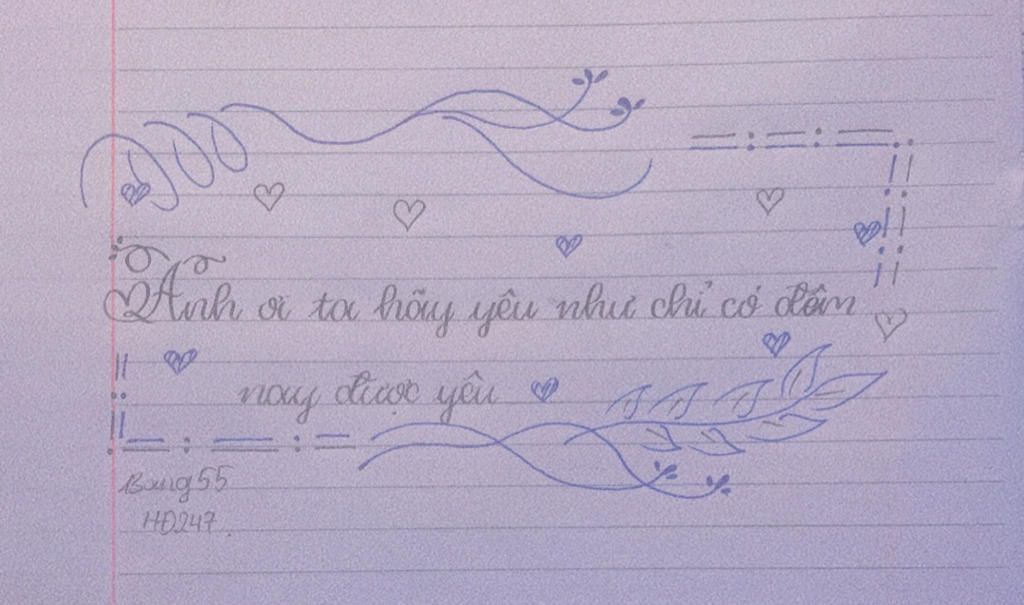 Anh ơi ta hãy yêu như chỉ có đêm
nay được yêu
Băng55
HĐ247